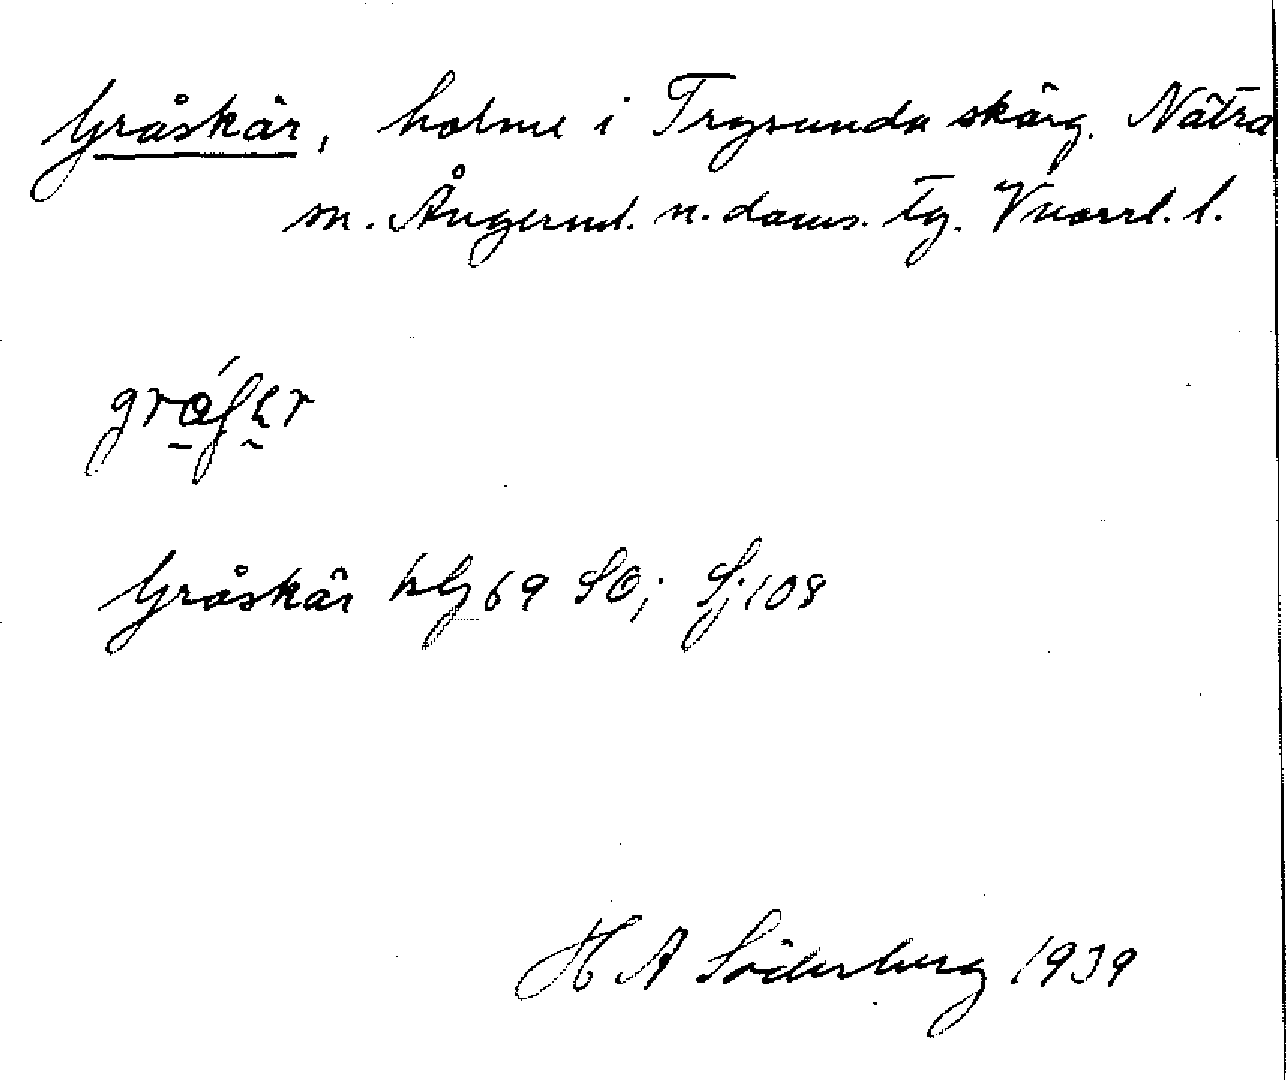 Gråskär, holme i Trysunda skärg. Nätra
sn. Ångerml. n. doms. tg. Vnorrl. l.
Gråskär hG 69 SO; Sj 108
H A Söderberg 1939